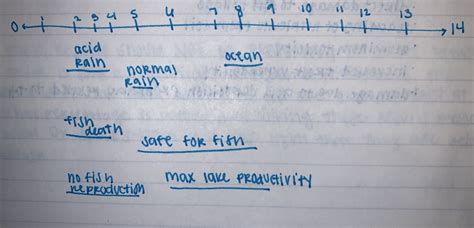 0 1 2 3 4 5 6 7 8 9 10 11 12 13 14
acid rain
normal rain
ocean
fish death
safe for fish
no fish reproduction
max lake productivity